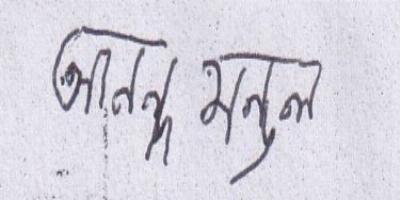 আনন্দ মন্ডল